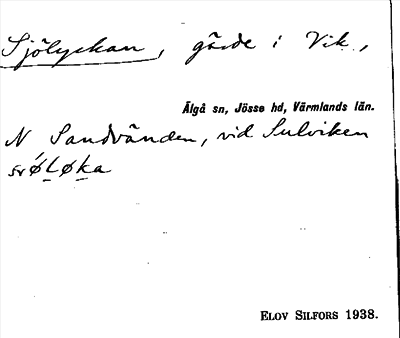 Sjölyckan, gärde i Vik,
Älgå sn, Jösse hd, Värmlands län.
N Sandvänden, vid Sulviken
ELOV SILFORS 1938.